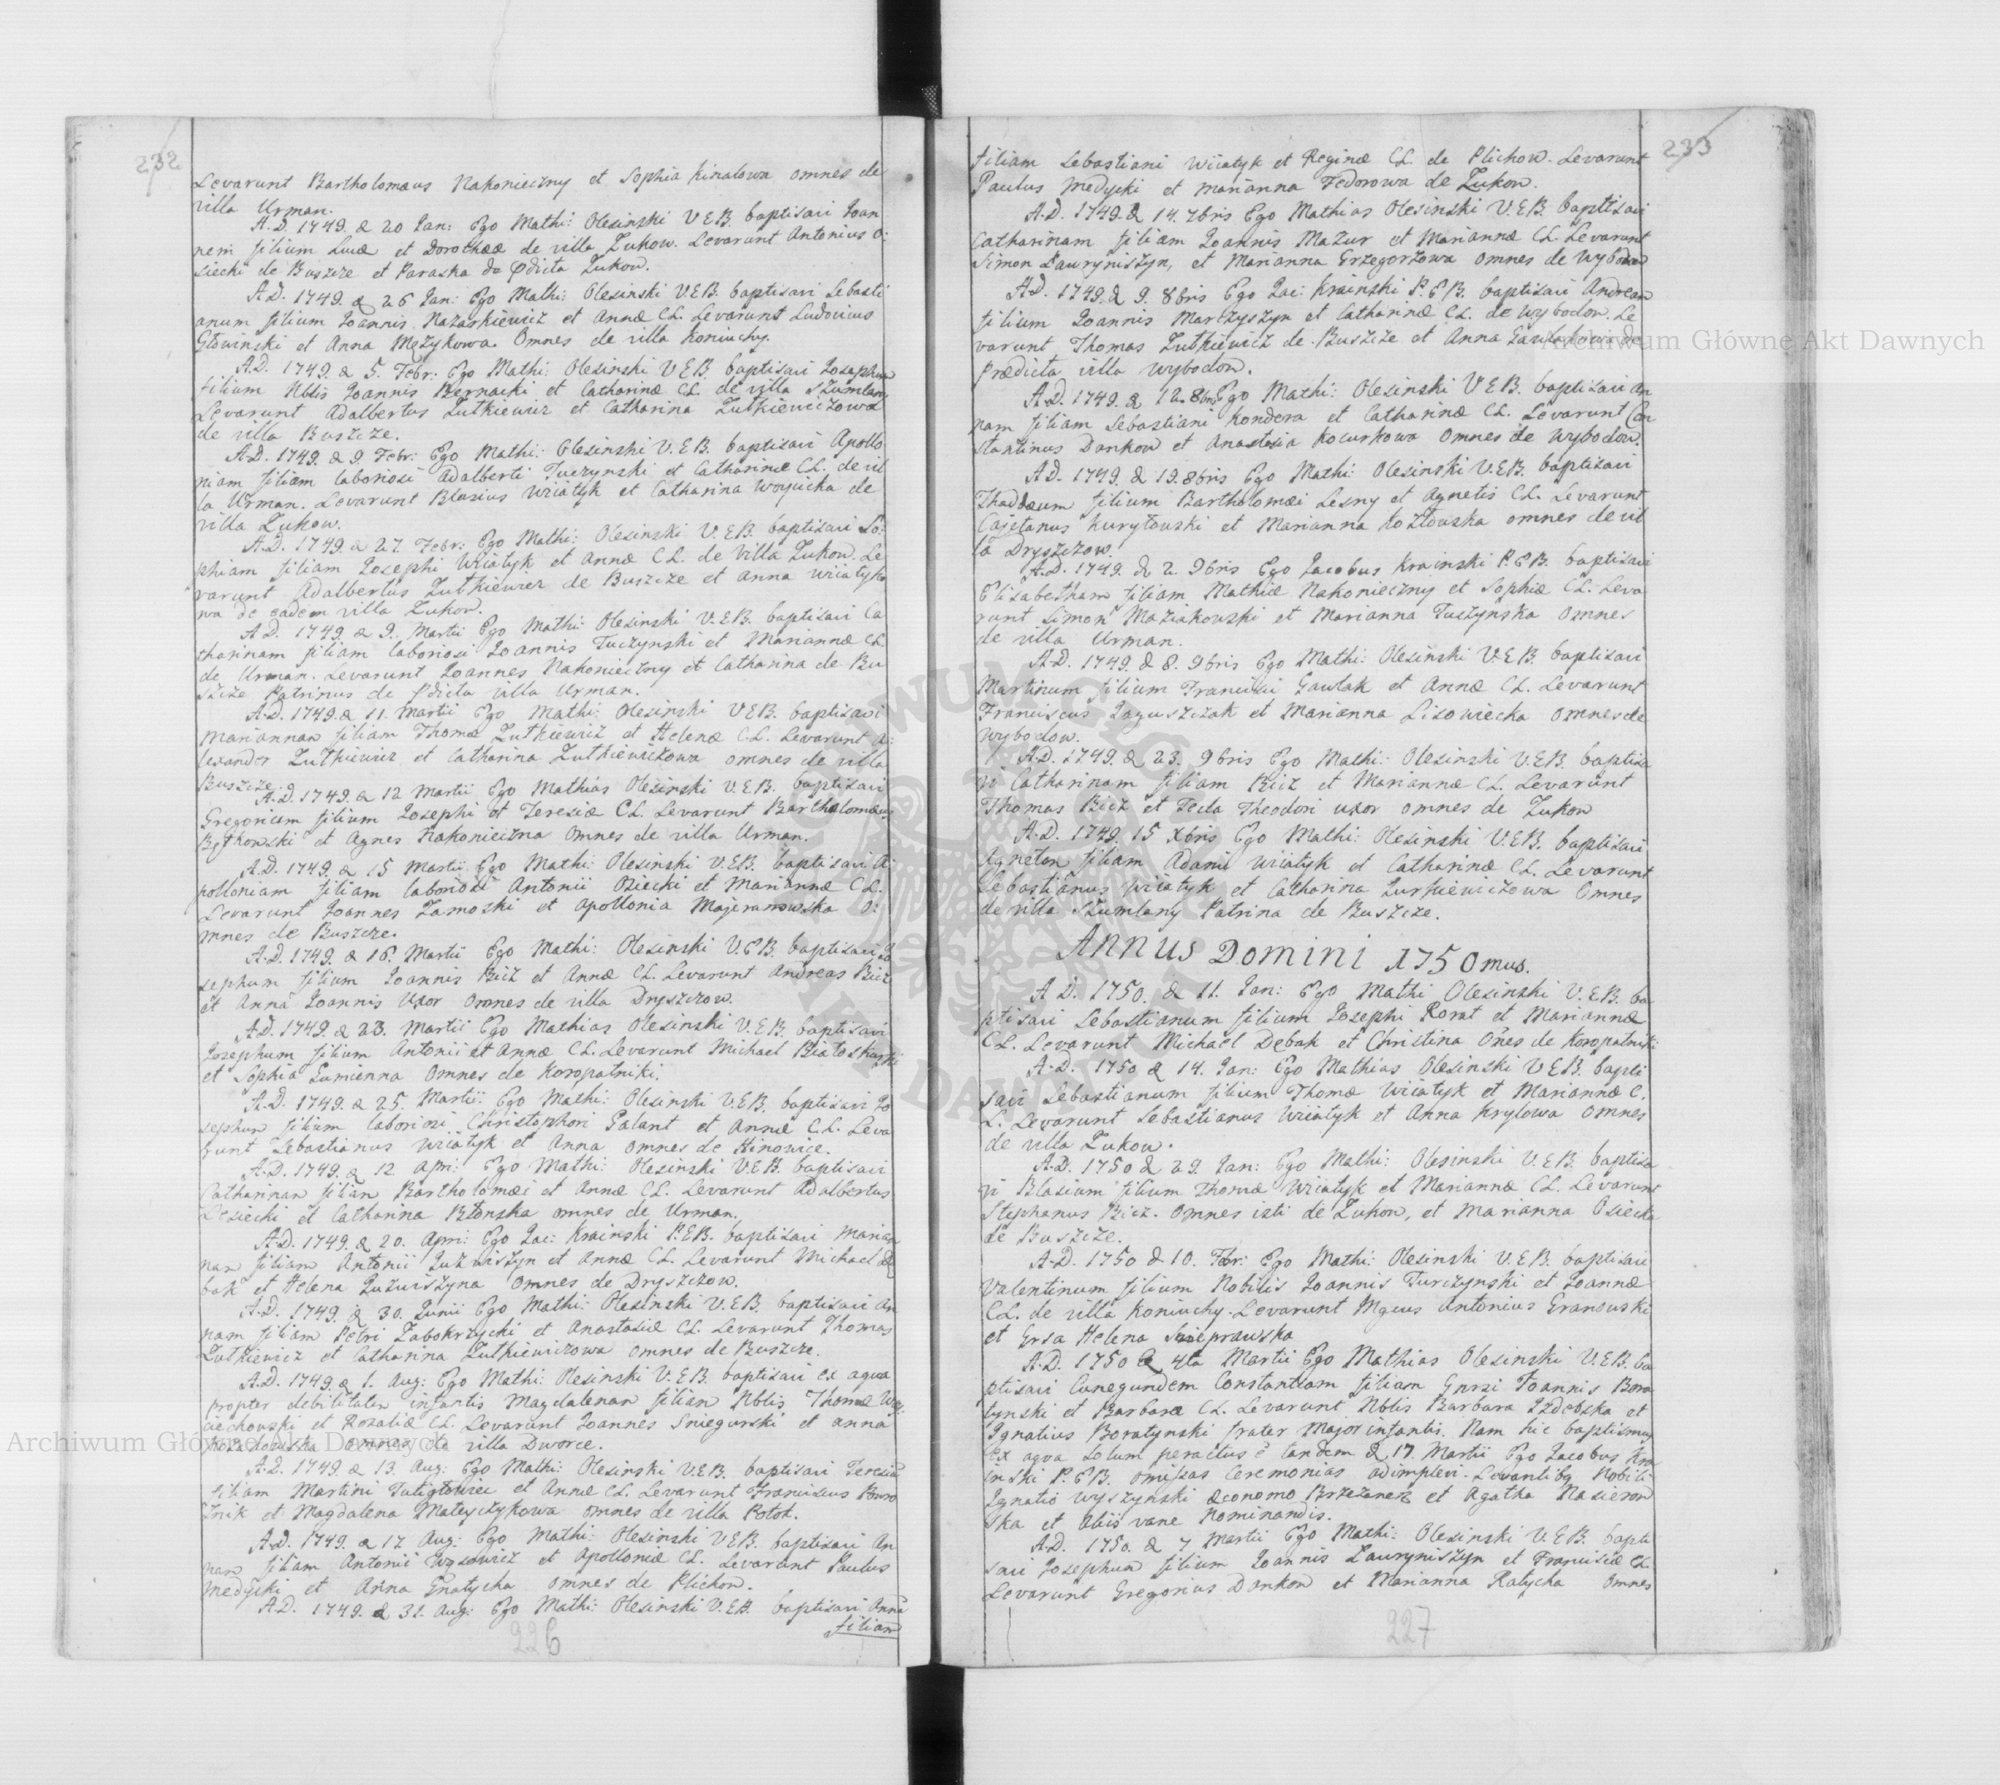 232
Levarunt Bartholomæus Nakonieczny et Sophia Kinalowa omnes de
villa Urman.
A.D. 1749. d 20 Jan: Ego Mathi: Olesinski V.E.B. baptisavi Joan
nem filium Lucæ et Dorotheæ de villa Zukow. Levarunt Antonius O:
siecki de Buszcze et Paraska de pdicta Zukow.
A.D. 1749. d 26 Jan: Ego Mathi: Olesinski V.E.B. baptisavi Sebasti
anum filium Joannis Nazarkiewicz et Annæ CL. Levarunt Ludovicus
Głowinski et Anna Mężykowa. Omnes de villa Koniuchy.
A.D. 1749. d 5. Febr: Ego Mathi: Olesinski V.E.B. baptisavi Josephum
filium Nblis Joannis Bernacki et Catharinæ CL. de villa Szumlany
Levarunt Adalbertus Zutkiewicz et Catharina Zutkiewiczowa
de villa Buszcze.
A.D. 1749. d 9. Febr: Ego Mathi: Olesinski V.E.B. baptisavi Apollo
niam filiam laboriosi Adalberti Tuczynski et Catharinæ CL. de vil
la Urman. Levarunt Blasius Wiiatyk et Catharina Woycicka de
villa Zukow.
A.D. 1749. d 27. Febr: Ego Mathi: Olesinski V.E.B. baptisavi So:
phiam filiam Josephi Wiiatyk et Annæ CL. de Villa Zukow. Le
varunt Adalbertus Zutkiewicz de Buszcze et Anna Wiiatyko
wa de eadem villa Zukow.
A.D. 1749. d 9. Martii Ego Mathi: Olesinski V.E.B. baptisavi Ca
tharinam filiam laboriosi Joannis Tuczynski et Mariannæ CL
de Urman. Levarunt Joannes Nakonieczny et Catharina de Bu
szcze Patrinus de pdicta villa Urman.
A.D. 1749. d 11. Martii Ego Mathi: Olesinski V.E.B. baptisavi
Mariannam filiam Thomæ Zutkiewicz et Helenæ CL. Levarunt A:
lexander Zutkiewicz et Catharina Zutkiewiczowa omnes de villa
Buszcze.
A.D. 1749. d 12 Martii Ego Mathias Olesinski V.E.B. baptisavi
Gregorium filium Josephi et Teresiæ CL. Levarunt Bartholomæus
et Agnes Nakonieczna omnes de villa Urman.
A.D. 1749. d 15 Martii Ego Mathi: Olesinski V.E.B. baptisavi A:
polloniam filiam laboriosi Antonii Osiecki et Mariannæ CL.
Levarunt Joannes Zamoski et Apollonia Majeranowska O:
mnes de Buszcze.
A.D. 1749. d 16. Martii Ego Mathi: Olesinski V.E.B. baptisavi Jo
sephum filium Joannis Bicz et Annæ CL. Levarunt Andreas Bicz
et Anna Joannis Uxor omnes de villa Dryszczow.
A.D. 1749. d 23. Martii Ego Mathias Olesinski V.E.B. baptisavi
Josephum filium Antonii et Annæ CL. Levarunt Michael
et Sophia Gumienna omnes de Koropatniki.
A.D. 1749. d 25. Martii Ego Mathi: Olesinski V.E.B. baptisavi Jo
sephum filium laboriosi Christophori Galant et Annæ CL. Leva
runt Sebastianus Wiiatyk et Anna omnes de Hinowice.
A.D. 1749. d 12 Apri: Ego Mathi: Olesinski V.E.B. baptisavi
Catharinam filiam Bartholomæi et Annæ CL. Levarunt Adalbertus
Lesiecki et Catharina omnes de Urman.
A.D. 1749. d 20. Apri: Ego Jac: Krainski P.E.B. baptisavi Marian
nam filiam Antonii et Annæ CL. Levarunt Michael Dę
bak et Helena omnes de Dryszczow.
A.D. 1749. d 30. Junii Ego Mathi: Olesinski V.E.B. baptisavi An
nam filiam Petri Zabokrzycki et Anastasiæ CL. Levarunt Thomas
Zutkiewicz et Catharina Zutkiewiczowa omnes de Buszcze.
A.D. 1749. d 1. Aug: Ego Mathi: Olesinski V.E.B. baptisavi ex aqua
propter debilitatem infantis Magdalenam filiam Nblis Thomæ Woy
ciechowski et Rozaliæ CL. Levarunt Joannes Sniegurski et Anna
omnes de villa Dworce.
A.D. 1749. d 13. Aug: Ego Mathi: Olesinski V.E.B. baptisavi Teresiam
filiam Martini et Annæ CL. Levarunt Franciscus
et Magdalena Mateyczykowa omnes de villa Potok.
A.D. 1749. d 17 Aug: Ego Mathi: Olesinski V.E.B. baptisavi An
nam filiam Antonii et Apolloniæ CL. Levarunt Paulus
Medycki et Anna Gnatycha omnes de Plichow.
A.D. 1749. d 31. Aug: Ego Mathi: Olesinski V.E.B. baptisavi Annā
filiam
226
233
filiam Sebastiani Wiiatyk et Reginæ CL. de Plichow. Levarunt
Paulus Medycki et Marianna Fedorowa de Zukow.
A.D. 1749. d 14. 7bris Ego Mathias Olesinski V.E.B. baptisavi
Catharinam filiam Joannis Mazur et Mariannæ CL. Levarunt
Simon Lauryniszyn, et Marianna Grzegorzowa omnes de Wybodow
A.D. 1749. d 9. 8bris Ego Jac: Krainski P.E.B. baptisavi Andream
filium Joannis Marczyszyn et Catharinæ CL. de Wybodow. Le
varunt Thomas Zutkiewicz de Buszcze et Anna Gawlakowa de
prædicta villa Wybodow.
A.D. 1749. d 12. 8bris Ego Mathi: Olesinski V.E.B. baptisavi An
nam filiam Sebastiani Kondera et Catharinæ CL. Levarunt Con
stantinus Dankow et Anastasia Kocurkowa omnes de Wybodow.
A.D. 1749. d 19. 8bris Ego Mathi: Olesinski V.E.B. baptisavi
Thaddæum filium Bartholomæi Lesny et Agnetis CL. Levarunt
Cajetanus Kuryłowski et Marianna Kozłowska omnes de vil
la Dryszczow.
A.D. 1749. d 2. 9bris Ego Jacobus Krainski P.E.B. baptisavi
Elisabetham filiam Mathiæ Nakonieczny et Sophiæ CL. Leva
runt Simon Maziakowski et Marianna Tuczynska omnes
de villa Urman.
A.D. 1749. d 8. 9bris Ego Mathi: Olesinski V.E.B. baptisavi
Martinum filium Francisci Gawlak et Annæ CL. Levarunt
Franciscus Jaguszczak et Marianna Lisowiecka omnes de
Wybodow.
A.D. 1749. d 23. 9bris Ego Mathi: Olesinski V.E.B. baptisa
vi Catharinam filiam Bicz et Mariannæ CL. Levarunt
Thomas Bicz et Tecla Theodori uxor omnes de Zukow
A.D. 1749. 15 Xbris Ego Mathi: Olesinski V.E.B. baptisavi
Agneten filiam Adami Wiiatyk et Catharinæ CL. Levarunt
Sebastianus Wiiatyk et Catharina Zurkiewiczowa Omnes
de villa Szumlany Patrina de Buszcze.
ANNUS DOMINI 1750mus.
A.D. 1750. d 11. Jan: Ego Mathi Olesinski V.E.B. ba
ptisavi Sebastianum filium Josephi Rorat et Mariannæ
CL. Levarunt Michael Dębak et Christina Ōnes de Koropatniki
A.D. 1750 d 14. Jan: Ego Mathias Olesinski V.E.B. bapti
savi Sebastianum filium Thomæ Wiiatyk et Mariannæ C.
L. Levarunt Sebastianus Wiiatyk et Anna Krylowa omnes
de villa Zukow.
A.D. 1750 d 29. Jan: Ego Mathi: Olesinski V.E.B. baptisa
vi Blasium filium Thomæ Wiiatyk et Mariannæ CL. Levarunt
Stephanus Bicz. Omnes isti de Zukow, et Marianna Osiecka
de Buszcze.
A.D. 1750 d 10. Febr: Ego Mathi: Olesinski V.E.B. baptisavi
Valentinum filium Nobilis Joannis Turczynski et Joannæ
CL. de villa Koniuchy. Levarunt Mgcus Antonius Granowski
et Grsa Helena
A.D. 1750 d 4ta Martii Ego Mathias Olesinski V.E.B. ba
ptisavi Cunegundem Constantiam filiam Gnrsi Joannis Bora
tynski et Barbaræ CL. Levarunt Nblis Barbara Izdebska et
Ignatius Boratynski frater Major infantis. Nam hic baptismus
ex aqua solum peractus ē tandem d 17 Martii Ego Jacobus Kra
inski P.E.B. omissas Ceremonias adimplevi. Levantibq Nobili
Ignatio Wyszynski œconomo Brzezanen et Agatha
et Aliis vane Nominandis.
A.D. 1750. d 7 Martii Ego Mathi: Olesinski V.E.B. bapti
savi Josephum filium Joannis Lauryniszyn et Franciscæ CL.
Levarunt Gregorius Dankow et Marianna Ratycha omnes
227
Archiwum Główne Akt Dawnych
Archiwum Główne Akt Dawnych
ARCHIWUM GŁÓWNE AKT DAWNYCH